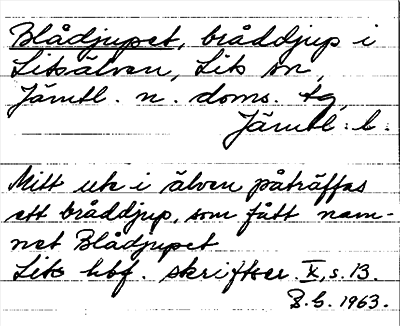 Blådjupet, bråddjup i
Litsälven, Lits sn,
Jämtl. n. doms. tg,
Jämtl. l.
Mitt ute i älven påträffas
ett bråddjup, som fått nam-
net Blådjupet
Lits hbf. skriftser. X, s. 13.
B. G. 1963.